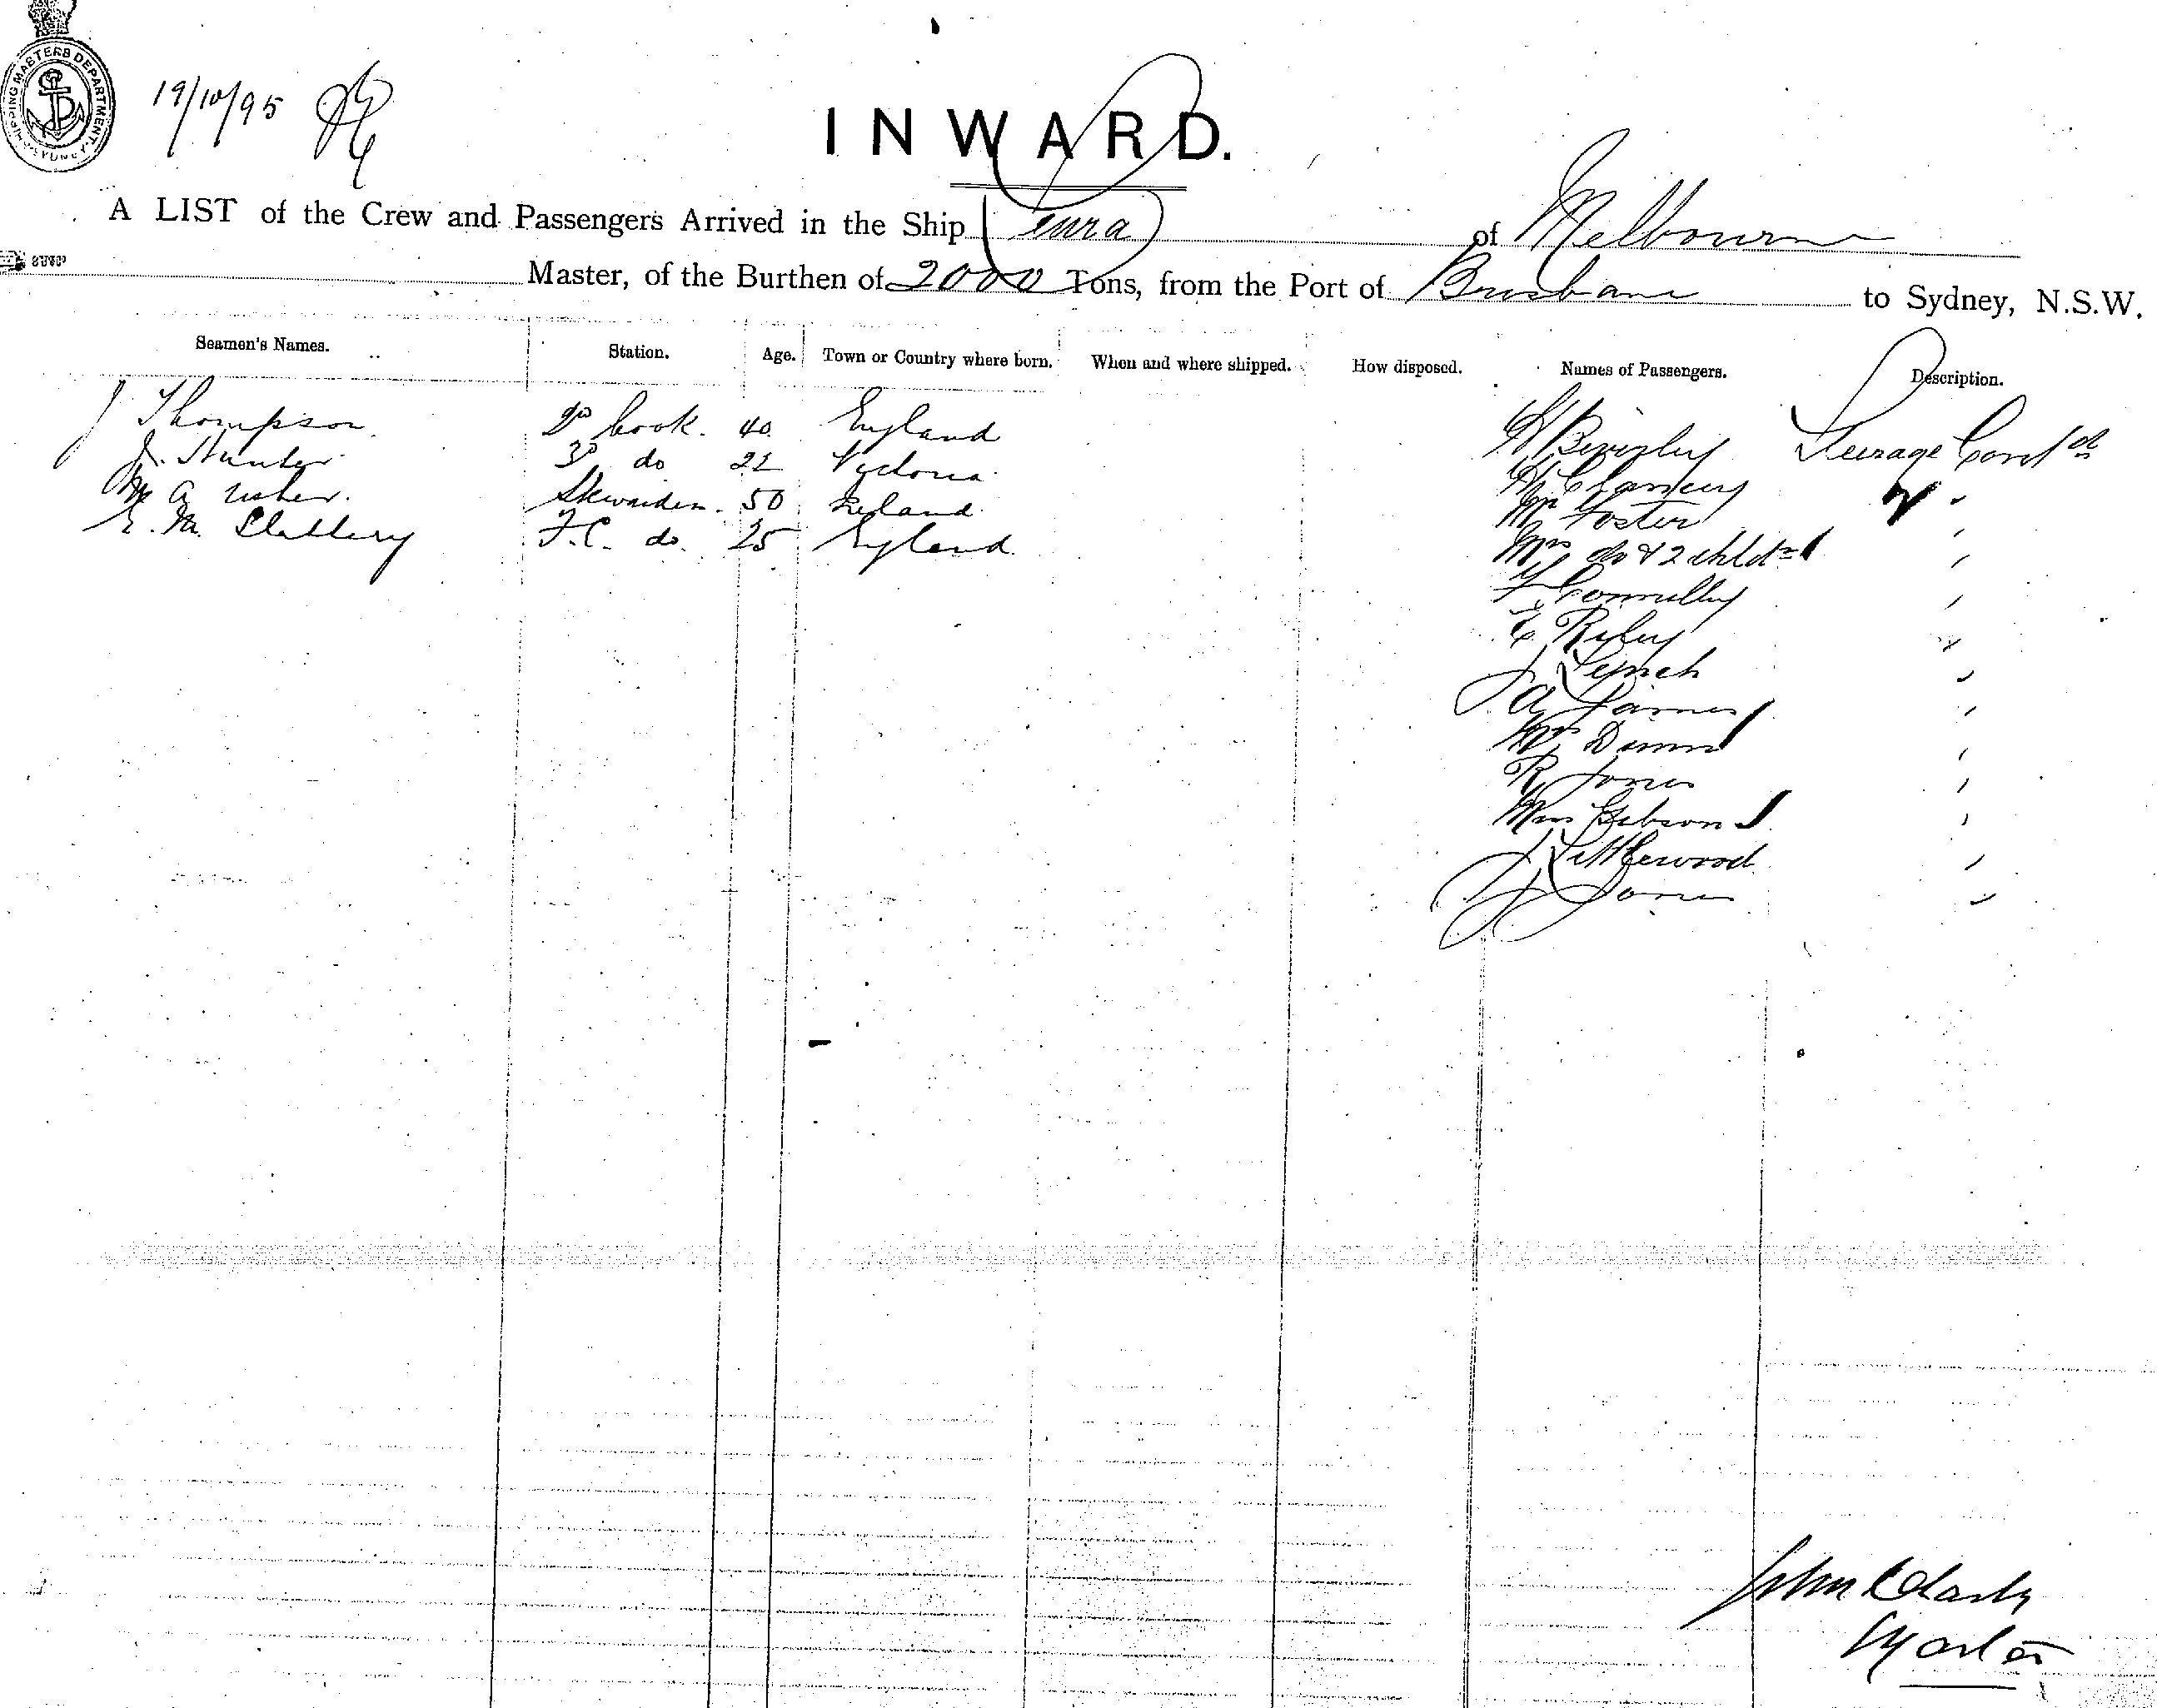 SHIPPING MASTERS DEPARTMENT SYDNEY
19/10/95
INWARD.
A LIST of the Crew and Passengers Arrived in the Ship Eura of Melbourne
Master, of the Burthen of 2000 Tons, from the Port of Brisbane to Sydney, N.S.W.
Seamen's Names. Station. Age. Town or Country where born. When and where shipped. How disposed. Names of Passengers. Description.
J Thompson 2nd Cook. 40 England
J. Hunter 3rd do 22 Victoria
M A Usher. Stewardess. 50 Ireland.
E. M. Slattery F.C. do. 25 England.
H Beverley Steerage Contd
H Clancey
Mr Foster
Mrs do & 2 childn
F Connolly
C Riley
J Lynch
A James
Mr Dunn
R Jones
Mrs Gibson
J Littlewood
J Jones
John Clark
Master